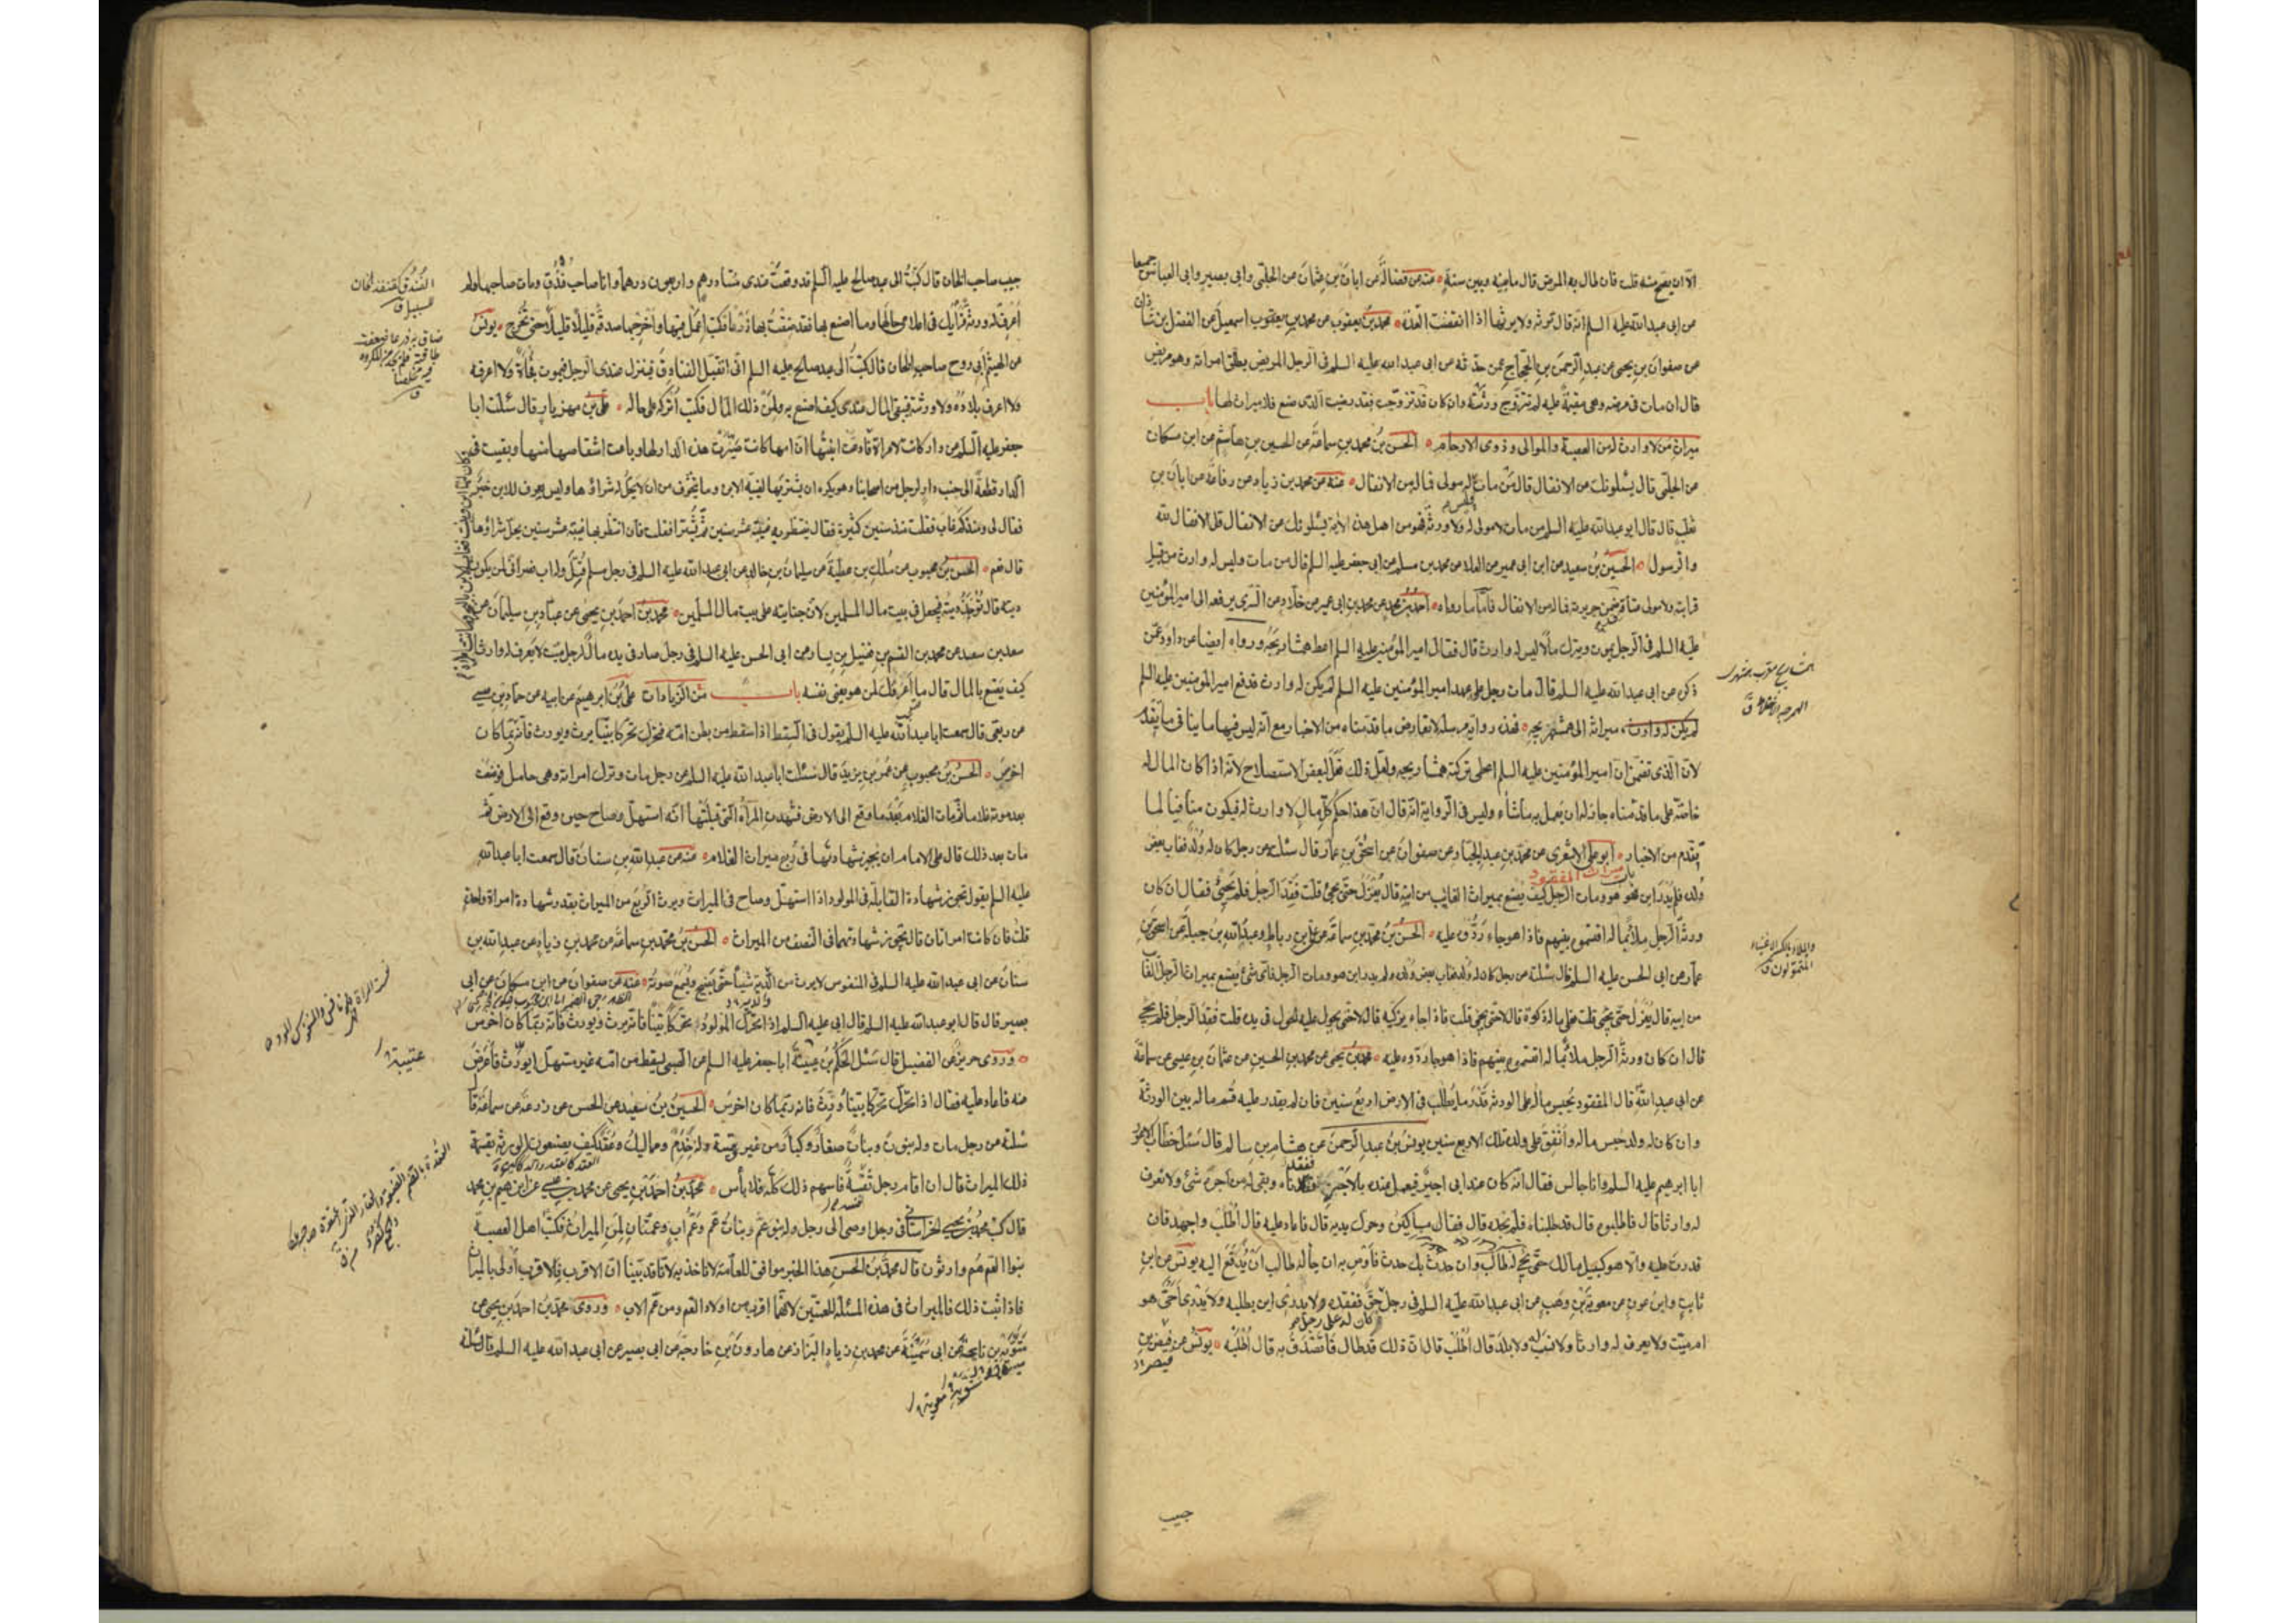 الا ان يصح منه قلت فان طال به المرض قال ما بينه وبين سنة عنه عن فضالة عن ابان بن عثمان عن الحلبي وابي بصير وابي العباس جميعا
عن ابي عبد الله عليه السلم انه قال ترثه ولا يرثها اذا انقضت العدة محمد بن يعقوب عن محمد بن اسمعيل عن الفضل بن شاذان
عن صفوان بن يحيى عن عبد الرحمن بن الحجاج عمن حدثه عن ابي عبد الله عليه السلم في الرجل المريض يطلق امراته وهو مريض
قال ان مات في مرضه وهي مقيمة عليه لم تتزوج ورثته وان كان قد تزوجت فقد رضيت الذي صنع فلا ميراث لها باب
ميراث من لا وارث له من العصبة والموالي وذوي الارحام الحسن بن محمد بن سماعة عن الحسين بن هاشم عن ابن مسكان
عن الحلبي قال يسئلونك عن الانفال قال من مات لا مولى له فماله من الانفال عنه عن محمد بن زياد عن رفاعة عن ابان بن
تغلب قال قال ابو عبد الله عليه السلم من مات لا مولى له ولا ورثة فهو من اهل هذه الاية يسئلونك عن الانفال قل الانفال لله
والرسول الحسين بن سعيد عن ابن ابي عمير عن العلا عن محمد بن مسلم عن ابي جعفر عليه السلم قال من مات وليس له وارث من قبل
قرابته ولا مولى عتاقه ضمن جريرته فماله من الانفال فاما ما رواه احمد بن محمد عن محمد بن ابي عمير عن خلاد عن السري يرفعه الى امير المؤمنين
عليه السلم في الرجل يموت ويترك مالا ليس له وارث قال فقال امير المؤمنين عليه السلم اعط همشاريجه ورواه ايضا عن داود عمن
ذكره عن ابي عبد الله عليه السلم قال مات رجل على عهد امير المؤمنين عليه السلم لم يكن له وارث فدفع امير المؤمنين عليه السلم
ميراثه الى همشهريجه فهذه رواية مرسلة لا تعارض ما قدمناه من الاخبار مع انه ليس فيها ما ينافي ما تقدم
لان الذي تضمن ان امير المؤمنين عليه السلم اعطى تركته همشاريجه ولعل ذلك فعل لبعض الاستصلاح لانه اذا كان المال له
خاصة على ما قدمناه جاز له ان يعمل به ما شاء وليس في الرواية انه قال ان هذا حكم كل مال لا وارث له فيكون منافيا لما
تقدم من الاخبار ابو علي الاشعري عن محمد بن عبد الجبار عن صفوان عن اسحق بن عمار قال سئلته عن رجل كان له ولد فغاب بعض
باب ميراث المفقود
ولده فلم يدر اين هو ومات الرجل كيف يصنع بميراث الغائب من ابيه قال يعزل حتى يجئ قلت فقد الرجل فلم يجئ فقال ان كان
ورثة الرجل ملاء بماله اقتسموه بينهم فاذا هو جاء ردوه عليه الحسن بن محمد بن سماعة عن علي بن رباط وعبد الله بن جبلة عن اسحق بن
عمار عن ابي الحسن عليه السلم قال سئلته عن رجل كان له ولد فغاب بعض ولده ولم يدر اين هو ومات الرجل فاي شئ يصنع بميراث الرجل الغائب
من ابيه قال يعزل حتى يجئ قلت فعلى ماله زكوة قال لا حتى يجئ قلت فاذا جاء يزكيه قال لا حتى يحول عليه الحول في يده قلت فقد الرجل فلم يجئ
قال ان كان ورثة الرجل ملاء بماله اقتسموه بينهم فاذا هو جاء ردوه عليه محمد بن يحيى عن محمد بن الحسين عن عثمان بن عيسى عن سماعة
عن ابي عبد الله قال المفقود يحبس ماله على الورثة قدر ما يطلب في الارض اربع سنين فان لم يقدر عليه قسم ماله بين الورثة
وان كان له ولد حبس ماله وانفق على ولده تلك الاربع سنين يونس بن عبد الرحمن عن هشام بن سالم قال سئل خطاب الاعور
ابا ابرهيم عليه السلم وانا جالس فقال انه كان عند ابي اجير يعمل عنده بالاجر ففقدناه وبقي له من اجره شئ ولا نعرف
له وارثا قال فاطلبوه قال قد طلبناه فلم نجده قال فقال مساكين وحرك يديه قال فاعاد عليه قال اطلب واجهد فان
قدرت عليه والا هو كسبيل مالك حتى يجئ له طالب وان حدث بك حدث فاوص به ان جاء له طالب ان يدفع اليه يونس عن ابن
ثابت وابن عون عن معوية بن وهب عن ابي عبد الله عليه السلم في رجل كان له على رجل حق ففقده ولا يدري اين يطلبه ولا يدري احي هو
ام ميت ولا يعرف له وارثا ولا نسب له ولا بلد قال اطلب قال ان ذلك قد طال فاتصدق به قال اطلبه يونس عن فيض بن
حبيب
حبيب صاحب الخان قال كتبت الى عبد صالح عليه السلم قد وقعت عندي مئتا درهم واربعون درهما وانا صاحب فندق ومات صاحبها ولم
اعرف له ورثة فرأيك في اعلامي حالها وما اصنع بها فقد ضقت بها ذرعا فكتب اعمل فيها واخرجها صدقة قليلا قليلا حتى تخرج يونس
عن الهيثم ابي روح صاحب الخان قال كتبت الى عبد صالح عليه السلم اني اتقبل الفنادق فينزل عندي الرجل فيموت فجأة ولا اعرفه
ولا اعرف بلاده ولا ورثته فيبقى المال عندي كيف اصنع به ولمن ذلك المال فكتب اتركه على حاله علي بن مهزيار قال سئلت ابا
جعفر عليه السلم عن دار كانت لامراة
الدار قطعة الى جنب دار لرجل من اصحابنا وهو يكره ان يشتريها لغيبة الابن وما يتخوف من ان لا يحل له شراؤها وليس يعرف للابن خبر
فقال لي ومنذ كم غاب فقلت منذ سنين كثيرة فقال ينتظر به غيبة عشر سنين ثم يشترى فقلت فان انتظر بها غيبة عشر سنين يحل شراؤها
قال نعم الحسن بن محبوب عن مالك بن عطية عن سليمان بن خالد عن ابي عبد الله عليه السلم في رجل مسلم قتل وله اب نصراني لمن يكون
ديته قال تؤخذ ديته فتجعل في بيت مال المسلمين لان جنايته على بيت مال المسلمين محمد بن احمد بن يحيى عن عباد بن سليمان عن
سعد بن سعد عن محمد بن القسم بن فضيل بن يسار عن ابي الحسن عليه السلم في رجل صار في يده مال لرجل ميت لا يعرف له وارثا
كيف يصنع بالمال قال ما اعرفك لمن هو يعني نفسه باب من الزيادات علي بن ابرهيم عن ابيه عن حماد بن عيسى
عن ربعي قال سمعت ابا عبد الله عليه السلم يقول في السقط اذا سقط من بطن امه فتحرك تحركا بينا يرث ويورث فانه ربما كان
اخرس الحسن بن محبوب عن عمر بن يزيد قال سئلت ابا عبد الله عليه السلم عن رجل مات وترك امراته وهي حامل فوضعت
بعد موته غلاما ثم مات الغلام بعد ما وقع الى الارض فشهدت المرأة التي قبلتها انه استهل وصاح حين وقع الى الارض ثم
مات بعد ذلك قال على الامام ان يجيز شهادتها في ربع ميراث الغلام عنه عن عبد الله بن سنان قال سمعت ابا عبد الله
عليه السلم يقول تجوز شهادة القابلة في المولود اذا استهل وصاح في الميراث ويرث الربع من الميراث بقدر شهادة امراة واحدة
قلت فان كانت امراتان قال تجوز شهادتهما في النصف من الميراث الحسن بن محمد بن سماعة عن محمد بن زياد عن عبد الله بن
سنان عن ابي عبد الله عليه السلم في المنفوس لا يرث من الدية شيئا حتى يصيح ويسمع صوته عنه عن صفوان عن ابن مسكان عن ابي
بصير قال قال ابو عبد الله عليه السلم قال ابي عليه السلم اذا تحرك المولود تحركا بينا فانه يرث ويورث فانه ربما كان اخرس
وروى حريز عن الفضيل قال سئل الحكم بن عتيبة ابا جعفر عليه السلم عن الصبي يسقط من امه غير مستهل ايورث فاعرض
عنه فاعاد عليه فقال اذا تحرك تحركا بينا ورث فانه ربما كان اخرس الحسين بن سعيد عن الحسن عن زرعة عن سماعة قال
سئلته عن رجل مات وله بنون وبنات صغار وكبار من غير وصية وله خدم ومماليك وعقد كيف يصنعون الورثة بقسمة
ذلك الميراث قال ان اقام رجل ثقة قاسمهم ذلك كله فلا بأس محمد بن احمد بن يحيى عن محمد بن عيسى عن ابرهيم بن محمد
قال كتب محمد بن يحيى الخراساني اوصى الى رجل وله بنو عم وبنات عم وعم اب وعمتان لمن الميراث فكتب اهل العصبة
بنوا العم هم وارثون قال محمد بن الحسن هذا الخبر موافق للعامة لا ناخذ به لانا قد بينا ان الاقرب فالاقرب اولى بالميراث
فاذا ثبت ذلك فالميراث في هذه المسئلة للعمتين لانهما اقرب من اولاد العم ومن عم الاب وروى محمد بن احمد بن يحيى عن
عن ابي سمينة عن محمد بن زياد البزاز عن هارون بن خارجة عن ابي بصير عن ابي عبد الله عليه السلم قال سئلته